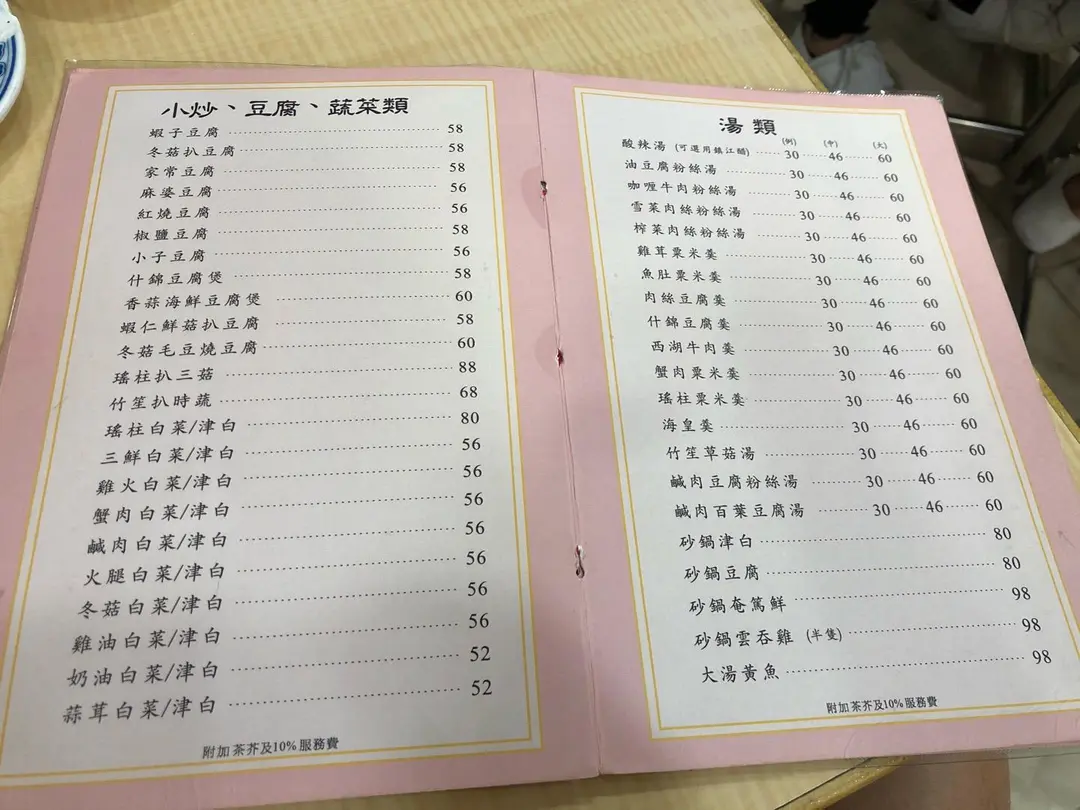 小炒、豆腐、蔬菜類
蝦子豆腐 58
冬菇扒豆腐 58
家常豆腐 58
麻婆豆腐 56
紅燒豆腐 56
椒鹽豆腐 58
小子豆腐 56
什錦豆腐煲 58
香蒜海鮮豆腐煲 60
蝦仁鮮菇扒豆腐 58
冬菇毛豆燒豆腐 60
瑤柱扒三菇 88
竹笙扒時蔬 68
瑤柱白菜/津白 80
三鮮白菜/津白 56
雞火白菜/津白 56
蟹肉白菜/津白 56
鹹肉白菜/津白 56
火腿白菜/津白 56
冬菇白菜/津白 56
雞油白菜/津白 56
奶油白菜/津白 52
蒜茸白菜/津白 52
附加茶芥及10%服務費
湯類
(例) (中) (大)
酸辣湯 (可選用鎮江醋) 30 46 60
油豆腐粉絲湯 30 46 60
咖喱牛肉粉絲湯 30 46 60
雪菜肉絲粉絲湯 30 46 60
榨菜肉絲粉絲湯 30 46 60
雞茸粟米羹 30 46 60
魚肚粟米羹 30 46 60
肉絲豆腐羹 30 46 60
什錦豆腐羹 30 46 60
西湖牛肉羹 30 46 60
蟹肉粟米羹 30 46 60
瑤柱粟米羹 30 46 60
海皇羹 30 46 60
竹笙草菇湯 30 46 60
鹹肉豆腐粉絲湯 30 46 60
鹹肉百葉豆腐湯 30 46 60
砂鍋津白 80
砂鍋豆腐 80
砂鍋奄篤鮮 98
砂鍋雲吞雞 (半隻) 98
大湯黃魚 98
附加茶芥及10%服務費